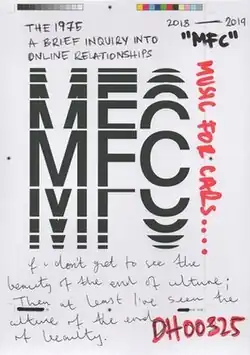 THE 1975
A BRIEF INQUIRY INTO
ONLINE RELATIONSHIPS
2018 — 2019
"MFC"
MFC
MFC
MFC
MFC
MUSIC FOR CARS......
If i don't get to see the
beauty of the end of culture;
Then at least I've seen the
culture of the end
of beauty.
DH00325